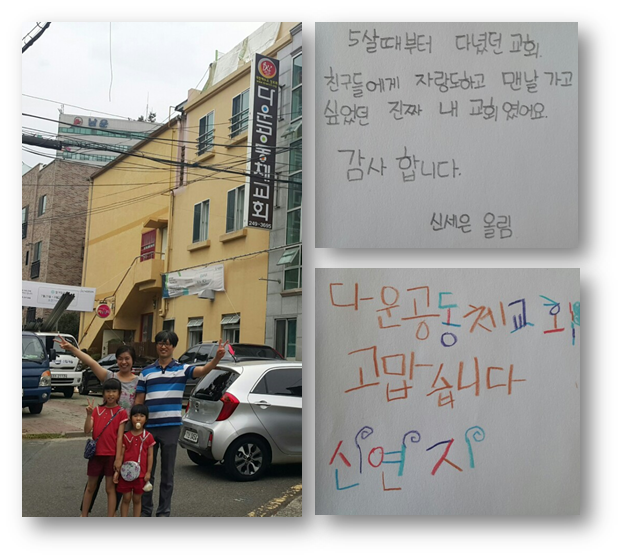 남운
다운공동체교회
5살때부터 다녔던 교회.
친구들에게 자랑도하고 맨날 가고
싶었던 진짜 내 교회였어요.
감사 합니다.
신세은 올림
다운공동체교회
고맙습니다
신연지